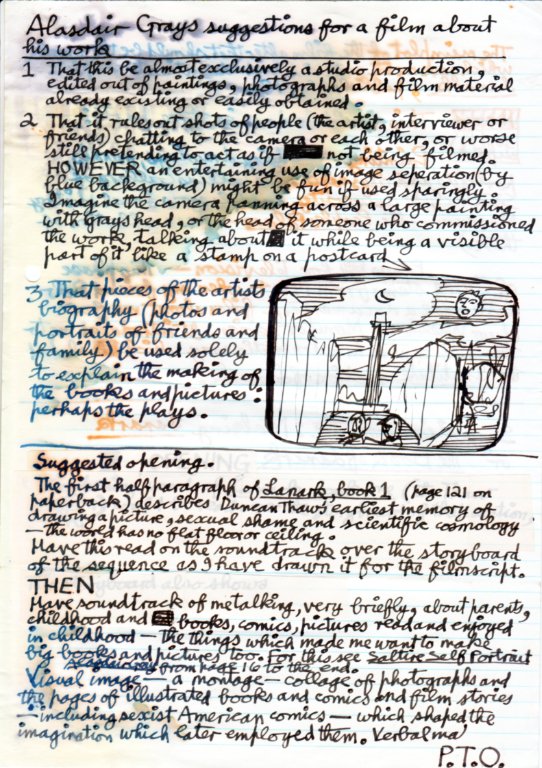 Alasdair Grays suggestions for a film about
his work
1 That this be almost exclusively a studio production,
edited out of paintings, photographs and film material
already existing or easily obtained.
2 That it rules out shots of people (the artist, interviewer or
friends) chatting to the camera or each other, or worse
still pretending to act as if not being filmed.
HOWEVER an entertaining use of image seperation (by
blue background) might be fun if used sparingly.
Imagine the camera panning across a large painting
with grays head, or the head of someone who commissioned
the work, talking about it while being a visible
part of it like a stamp on a postcard
3 That pieces of the artists
biography (photos and
portraits of friends and
family) be used solely
to explain the making of
the books and pictures:
perhaps the plays.
Suggested opening.
The first half paragraph of Lanark, book 1 (page 121 on
paperback) describes Duncan Thaws earliest memory of
drawing a picture, sexual shame and scientific cosmology
– the world has no flat floor or ceiling.
Have this read on the soundtrack over the storyboard
of the sequence as I have drawn it for the filmscript.
THEN
Have soundtrack of me talking, very briefly, about parents,
childhood and books, comics, pictures read and enjoyed
in childhood – the things which made me want to make
big books and pictures too. For this see Saltire Self Portrait
from page 16 to the end.
Visual image – a montage – collage of photographs and
the pages of illustrated books and comics and film stories
– including sexist American comics – which shaped the
imagination which later employed them. Verbal ma
P.T.O.